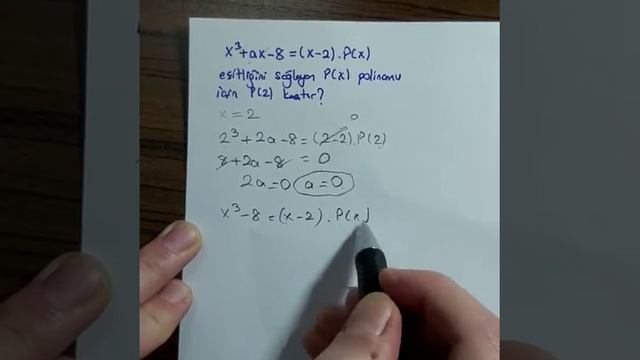 x³+ax-8=(x-2).P(x)
eşitliğini sağlayan P(x) polinomu
için P(2) kaçtır?
x=2
0
2³+2a-8=(2-2).P(2)
8+2a-8=0
2a=0 a=0
x³-8=(x-2).P(x)